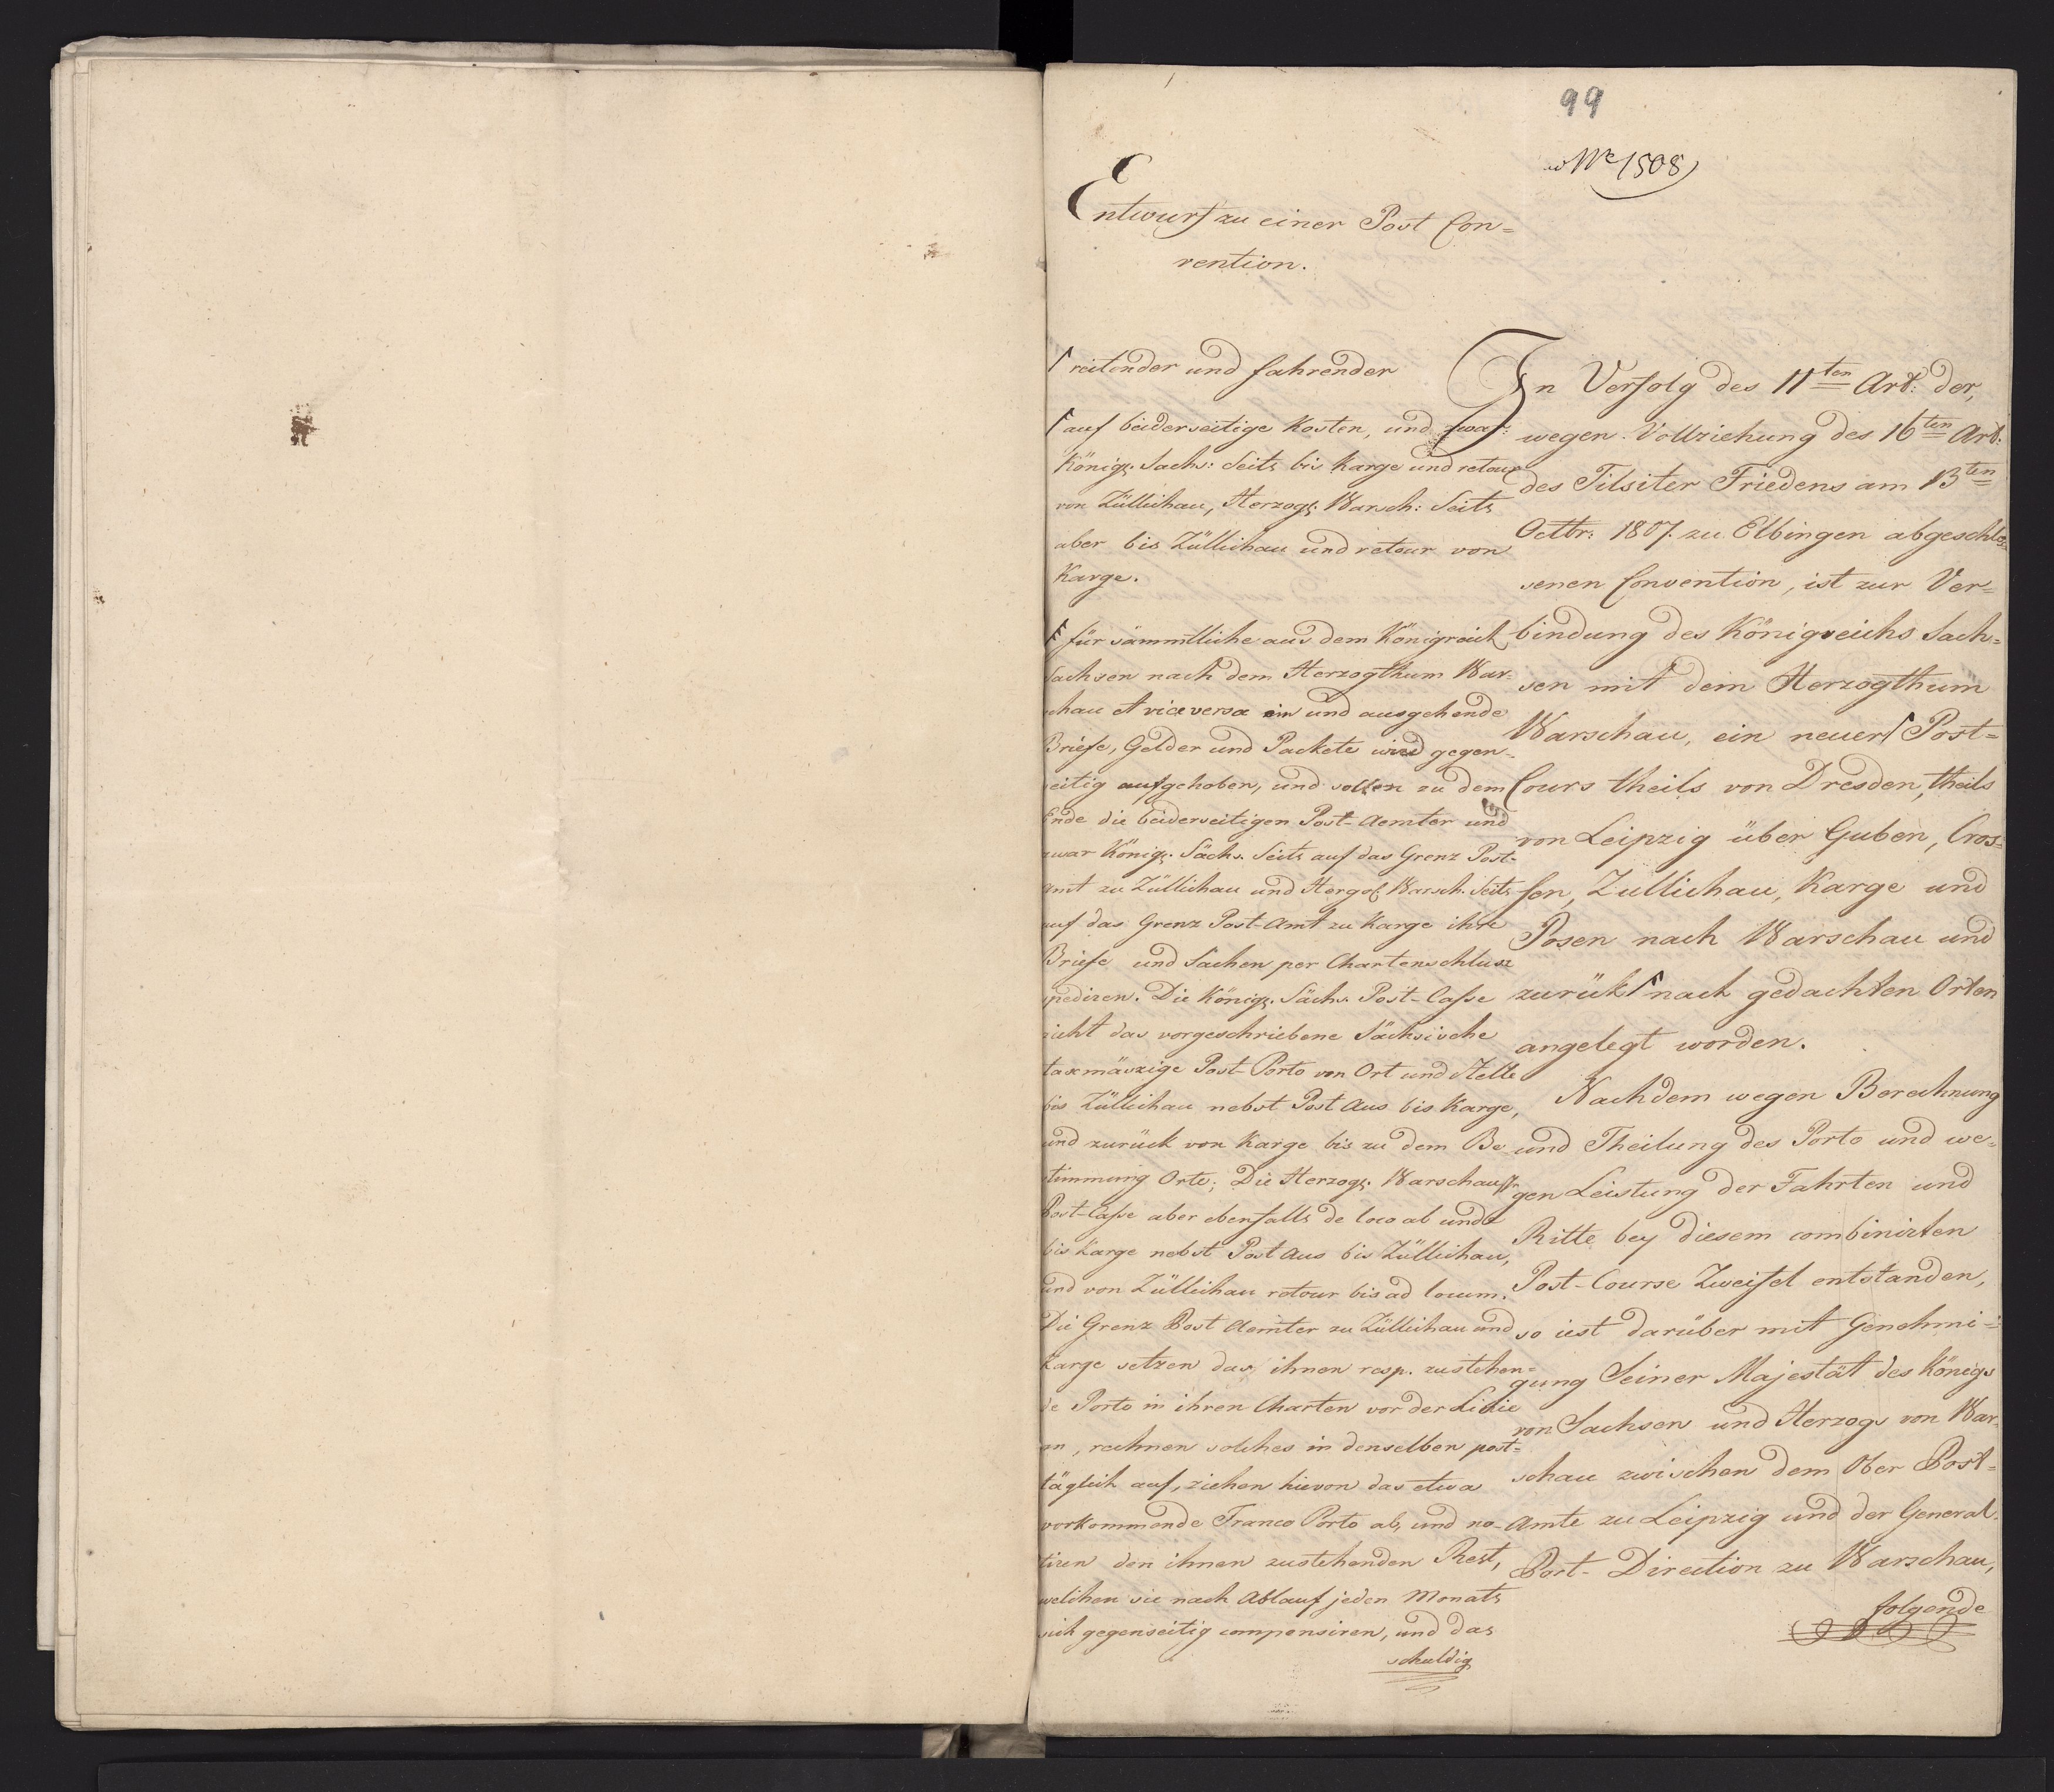 99
No 1508
Entwurf zu einer Post Con=
vention.
reitender und fahrender
auf beiderseitige Kosten, und zwar:
Königl. Sächs: Seits bis Karge und retour
von Züllichau, Herzogl. Warsch: Seits
aber bis Züllichau und retour von
Karge.
für sämmtliche aus dem Königreich
Sachsen nach dem Herzogthum War-
schau et vice versa ein und ausgehende
Briefe, Gelder und Packete wird gegen-
seitig aufgehoben, und sollen zu dem
Ende die beiderseitigen Post-Aemter und
zwar Königl. Sächs. Seits auf das Grenz Post-
amt zu Züllichau und Herzogl. Warsch. Seits
auf das Grenz Post-Amt zu Karge ihre
Briefe und Sachen per Chartenschluss
spediren. Die Königl. Sächs. Post-Casse
zieht das vorgeschriebene Sächsische
taxmäszige Post-Porto von Ort und Stelle
bis Züllichau nebst Post Aus bis Karge,
und zurück von Karge bis zu dem Be-
stimmung Orte; Die Herzogl. Warschausche
Post-Casse aber ebenfalls de loco ab und
bis Karge nebst Post Aus bis Züllichau,
und von Züllichau retour bis ad locum.
Die Grenz Post Aemter zu Züllichau und
Karge setzen das ihnen resp. zustehen=
de Porto in ihren Charten vor der Linie
an, rechnen solches in denselben post=
täglich auf, ziehen hievon das etwa
vorkommende Franco Porto ab, und no-
tiren den ihnen zustehenden Rest,
welchen sie nach Ablauf jeden Monats
sich gegenseitig compensiren, und das
schuldig
In Verfolg des 11ten Art: der,
wegen Vollziehung des 16ten Art:
des Tilsiter Friedens am 13ten
Octbr: 1807. zu Elbingen abgeschlos=
senen Convention, ist zur Ver=
bindung des Königreichs Sach=
sen mit dem Herzogthum
Warschau, ein neuer Post=
Cours theils von Dresden, theils
von Leipzig über Guben, Cros=
sen, Zullichau, Karge und
Posen nach Warschau und
zurük nach gedachten Orten
angelegt worden.
Nachdem wegen Berechnung
und Theilung des Porto und we=
gen Leistung der Fahrten und
Ritte bey diesem combinirten
Post-Course Zweifel entstanden,
so iest darüber mit Genehmi=
gung Seiner Majestät des Königs
von Sachsen und Herzogs von War-
schau zwischen dem Ober Post=
Amte zu Leipzig und der General-
Post-Direction zu Warschau,
folgende